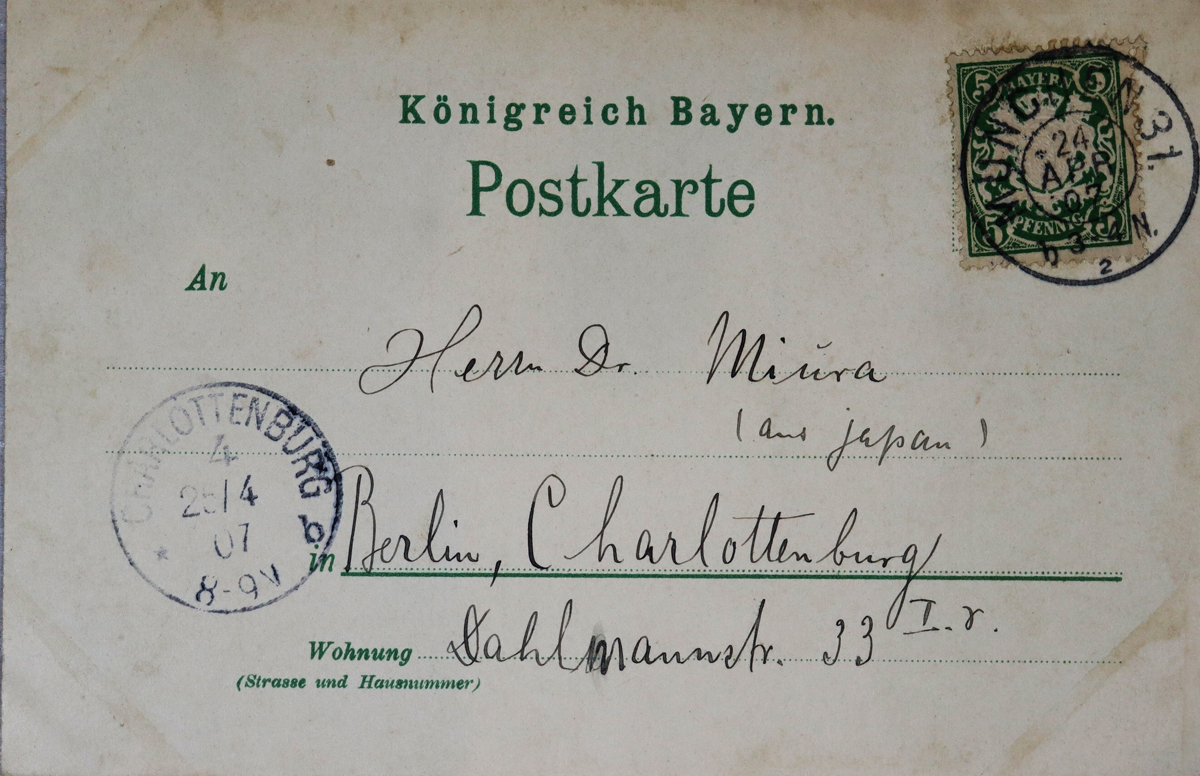 Königreich Bayern.
Postkarte
5 BAYERN 5
PFENNIG
MÜNCHEN 31.
24
APR
07
3-4 N.
2
An
Herrn Dr. Miura
(aus Japan)
CHARLOTTENBURG
4
25/4
07
8-9V
b.
in Berlin, Charlottenburg
Wohnung Dahlmannstr. 33 I. r.
(Strasse und Hausnummer)